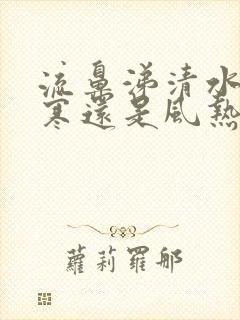 流鼻涕清水
寒還是風熱
蘿莉羅那